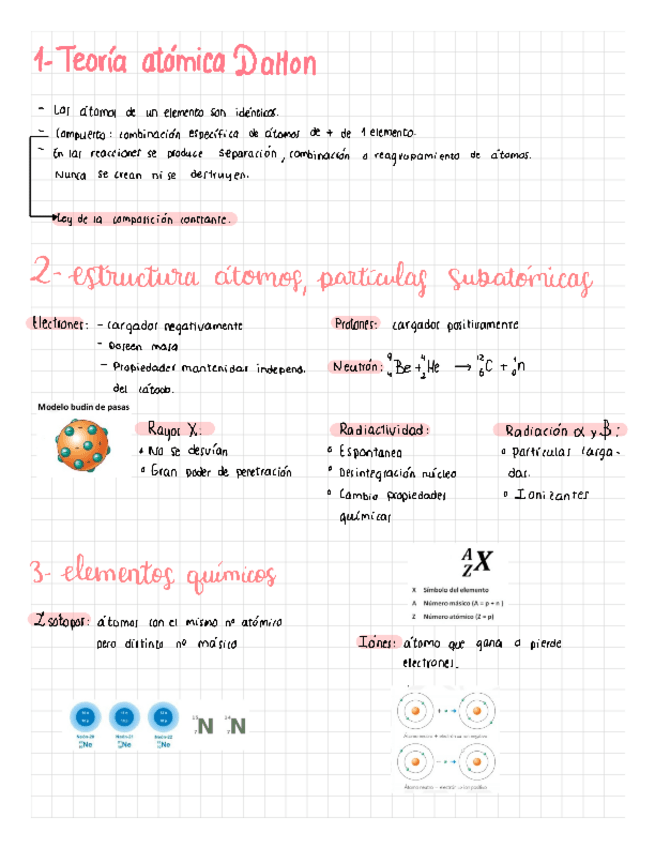 1- Teoría atómica Dalton
- Los átomos de un elemento son idénticos.
- Compuesto: combinación específica de átomos de + de 1 elemento.
- En las reacciones se produce separación, combinación o reagrupamiento de átomos.
Nunca se crean ni se destruyen.
Ley de la composición constante.
2- estructura átomos, partículas subatómicas
Electrones: - cargados negativamente
- Poseen masa
- Propiedades mantenidas independ.
del cátodo.
Protones: cargados positivamente
Neutrón: ⁹₄Be + ⁴₂He → ¹²₆C + ¹₀n
Modelo budín de pasas
Rayos X:
• No se desvían
• Gran poder de penetración
Radiactividad:
• Espontanea
• Desintegración núcleo
• Cambia propiedades
químicas
Radiación α y β:
• Partículas carga-
das.
• Ionizantes
3- elementos químicos
ᴬ
Z X
X Símbolo del elemento
A Número másico (A = p + n)
Z Número atómico (Z = p)
Isótopos: átomos con el mismo nº atómico
pero distinto nº másico
Iónes: átomo que gana o pierde
electrones.
Neón-20 Neón-21 Neón-22
Ne Ne Ne
N N